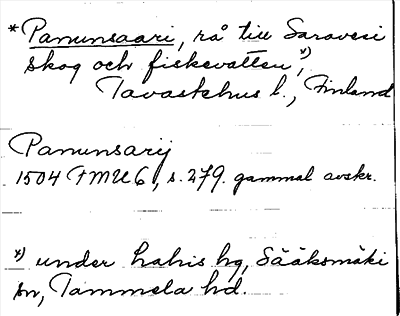 *Panunsaari, rå till Saravesi
skog och fiskevatten x),
Tavastehus l., Finland
Panunsarij
1504 FMU 6, s. 279. gammal avskr.
x) under Lahis hg, Sääksmäki
sn, Tammela hd.